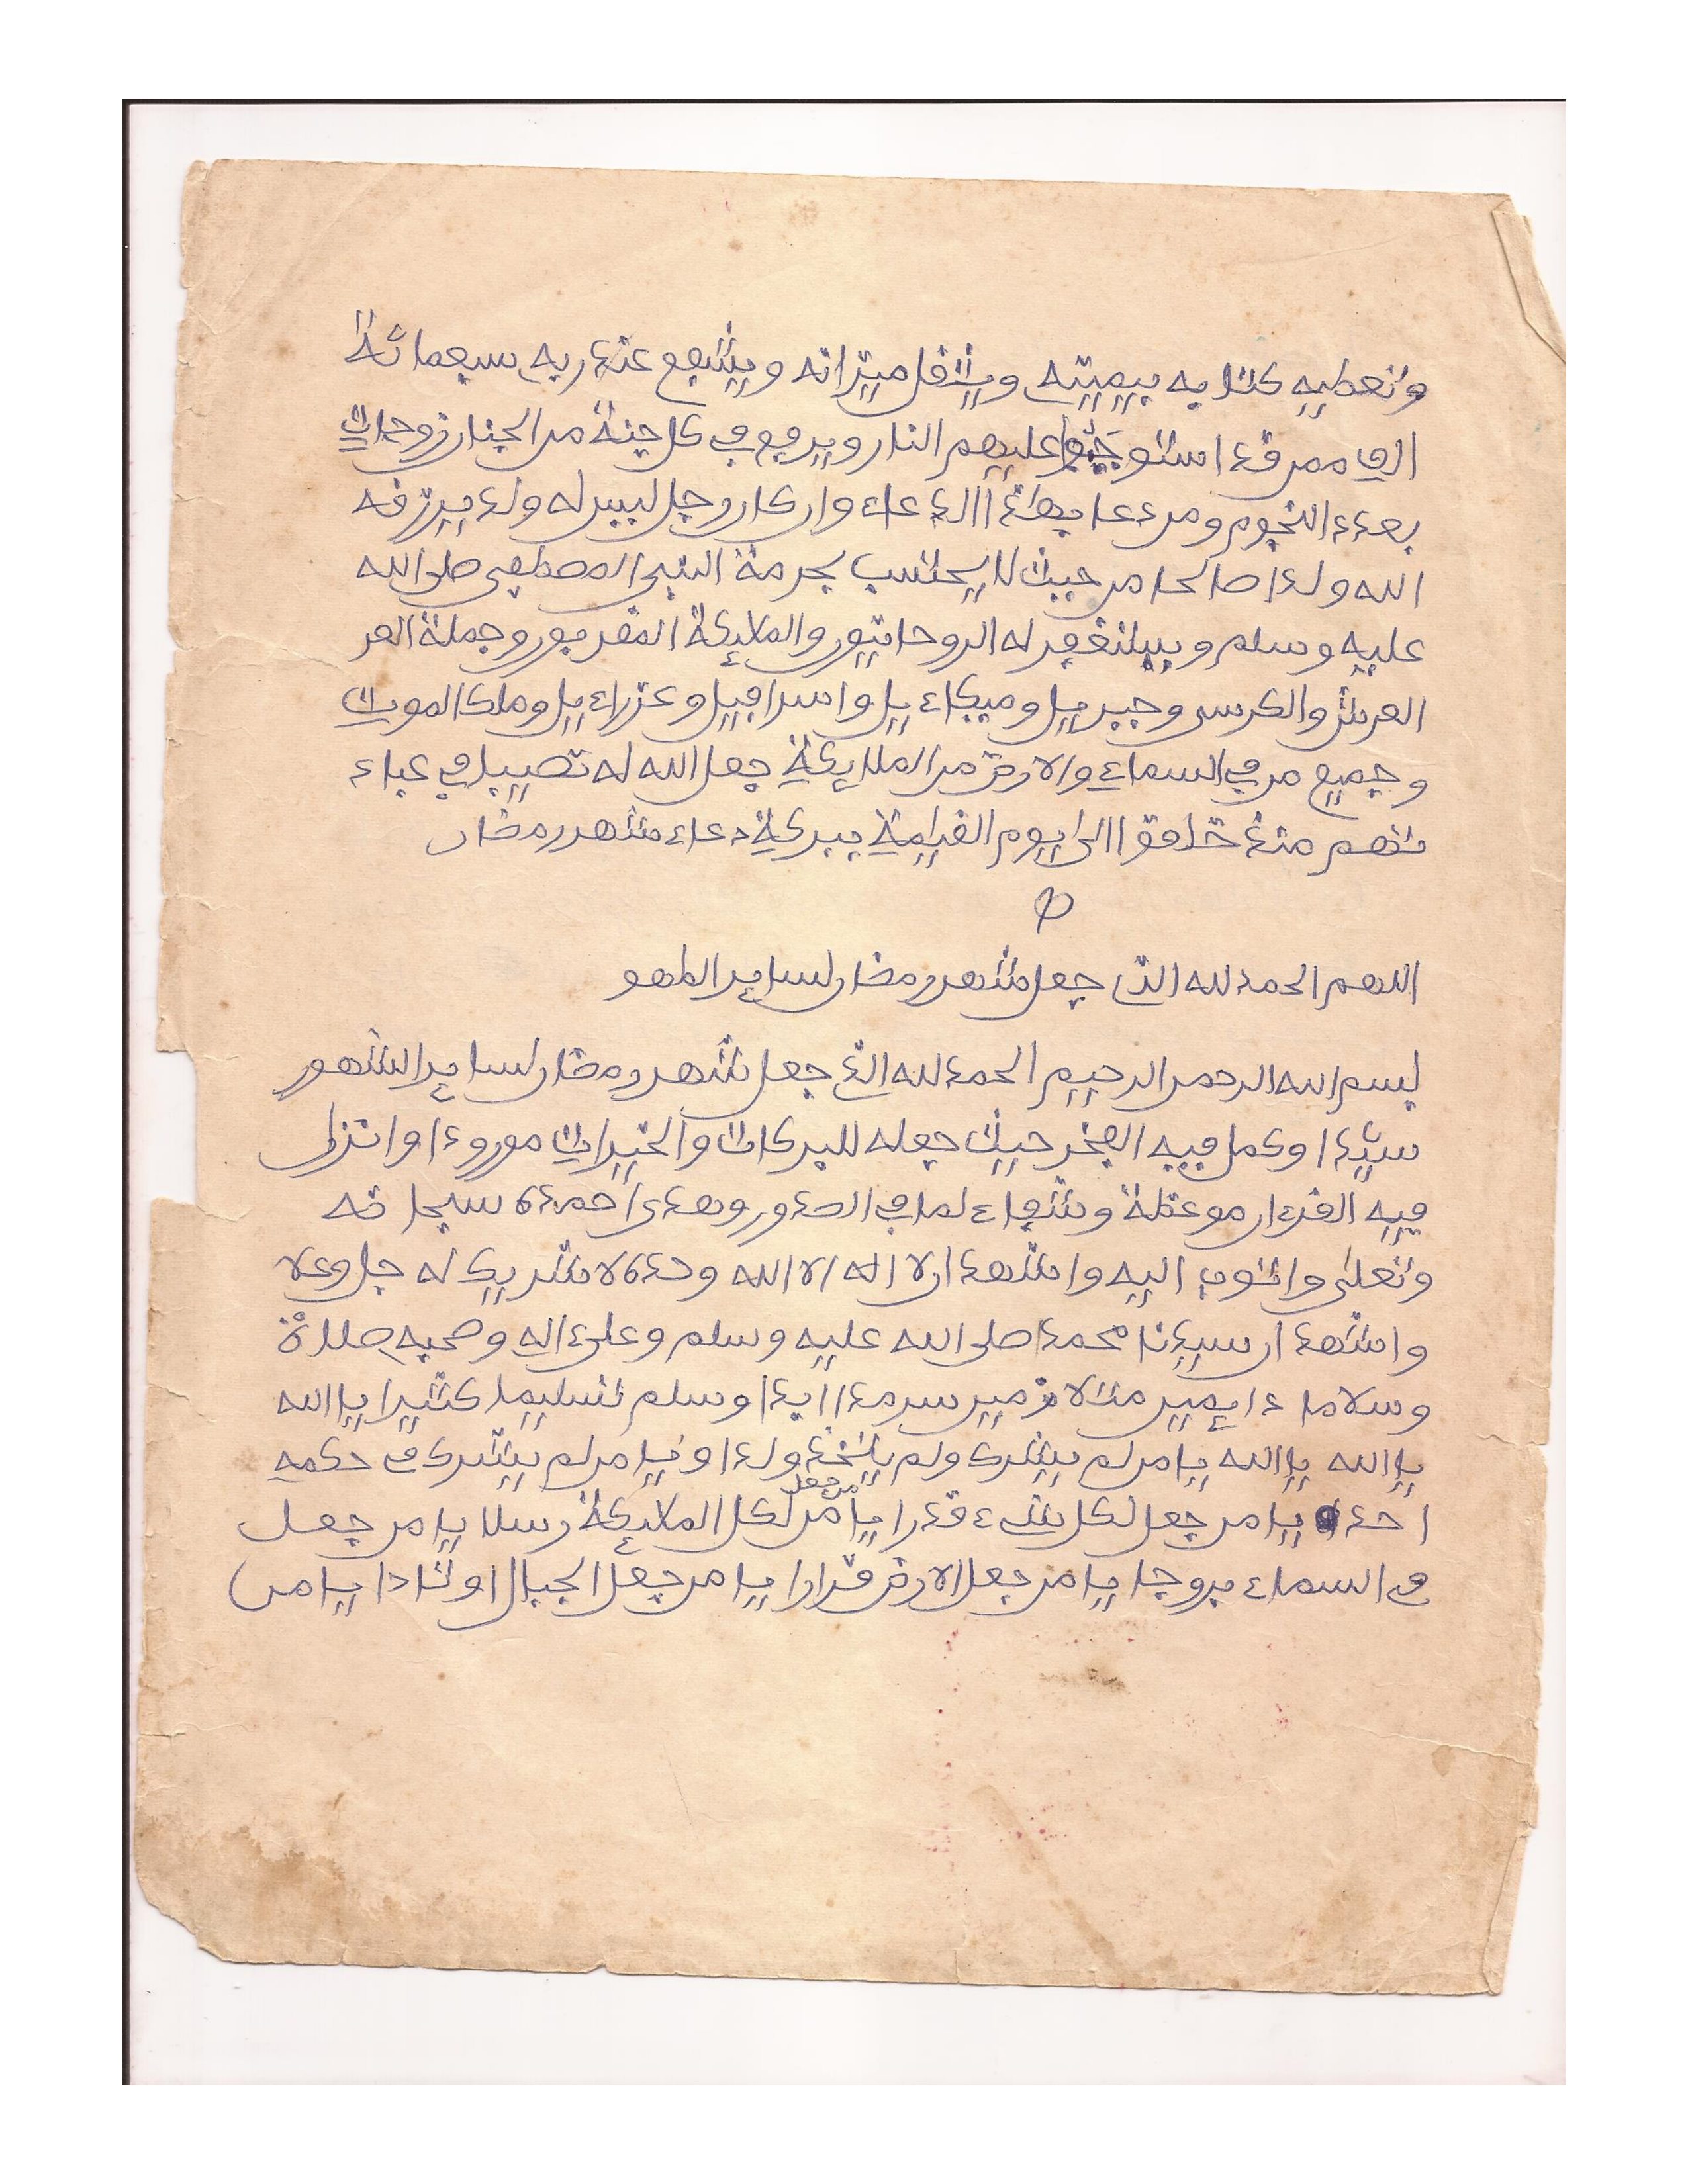 وتعطيه كتابه بيمينه ويثقل ميزانه ويشفع عند ربه سبعمائة
الف ممن قد استوجبوا عليهم النار ويرفع في كل جنة من الجنان زوجات
بعدد النجوم ومن دعا بهذا الدعاء وان كان رجل ليس له ولد يرزقه
الله ولدا صالحا من حيث لا يحتسب بحرمة النبي المصطفى صلى الله
عليه وسلم ويستغفر له الروحانيون والملايكة المقربون وجملة العر
العرش والكرسي وجبريل وميكاءيل واسرافيل وعزراءيل وملك الموت
وجميع من في السماء والارض من الملايكة جعل الله له نصيبا في عباد
تهم منذ خلقوا الى يوم القيامة ببركة دعاء شهر رمضان
اللهم الحمد لله الذي جعل شهر رمضان لساير الطهو
بسم الله الرحمن الرحيم الحمد لله الذي جعل شهر رمضان لساير الشهور
سيدا وكمل فيه الفخر حيث جعله للبركات والخيرات مورودا وانزل
فيه القرءان موعظة وشفاء لما في الصدور وهدى احمده سبحانه
وتعلى واتوب اليه واشهد ان لا اله الا الله وحده لا شريك له جل وعلا
واشهد ان سيدنا محمدا صلى الله عليه وسلم وعلى ءاله وصحبه صلاة
وسلاما دايمين متلازمين سرمدا ابدا وسلم تسليما كثيرا يا الله
يا الله يا الله يا من لم يشرك ولم يتخذ ولدا ويا من لم يشرك في حكمه
احدا يا من جعل لكل شيء قدرا يا من جعل لكل الملايكة رسلا يا من جعل
في السماء بروجا يا من جعل الارض قرارا يا من جعل الجبال اوتادا يا من